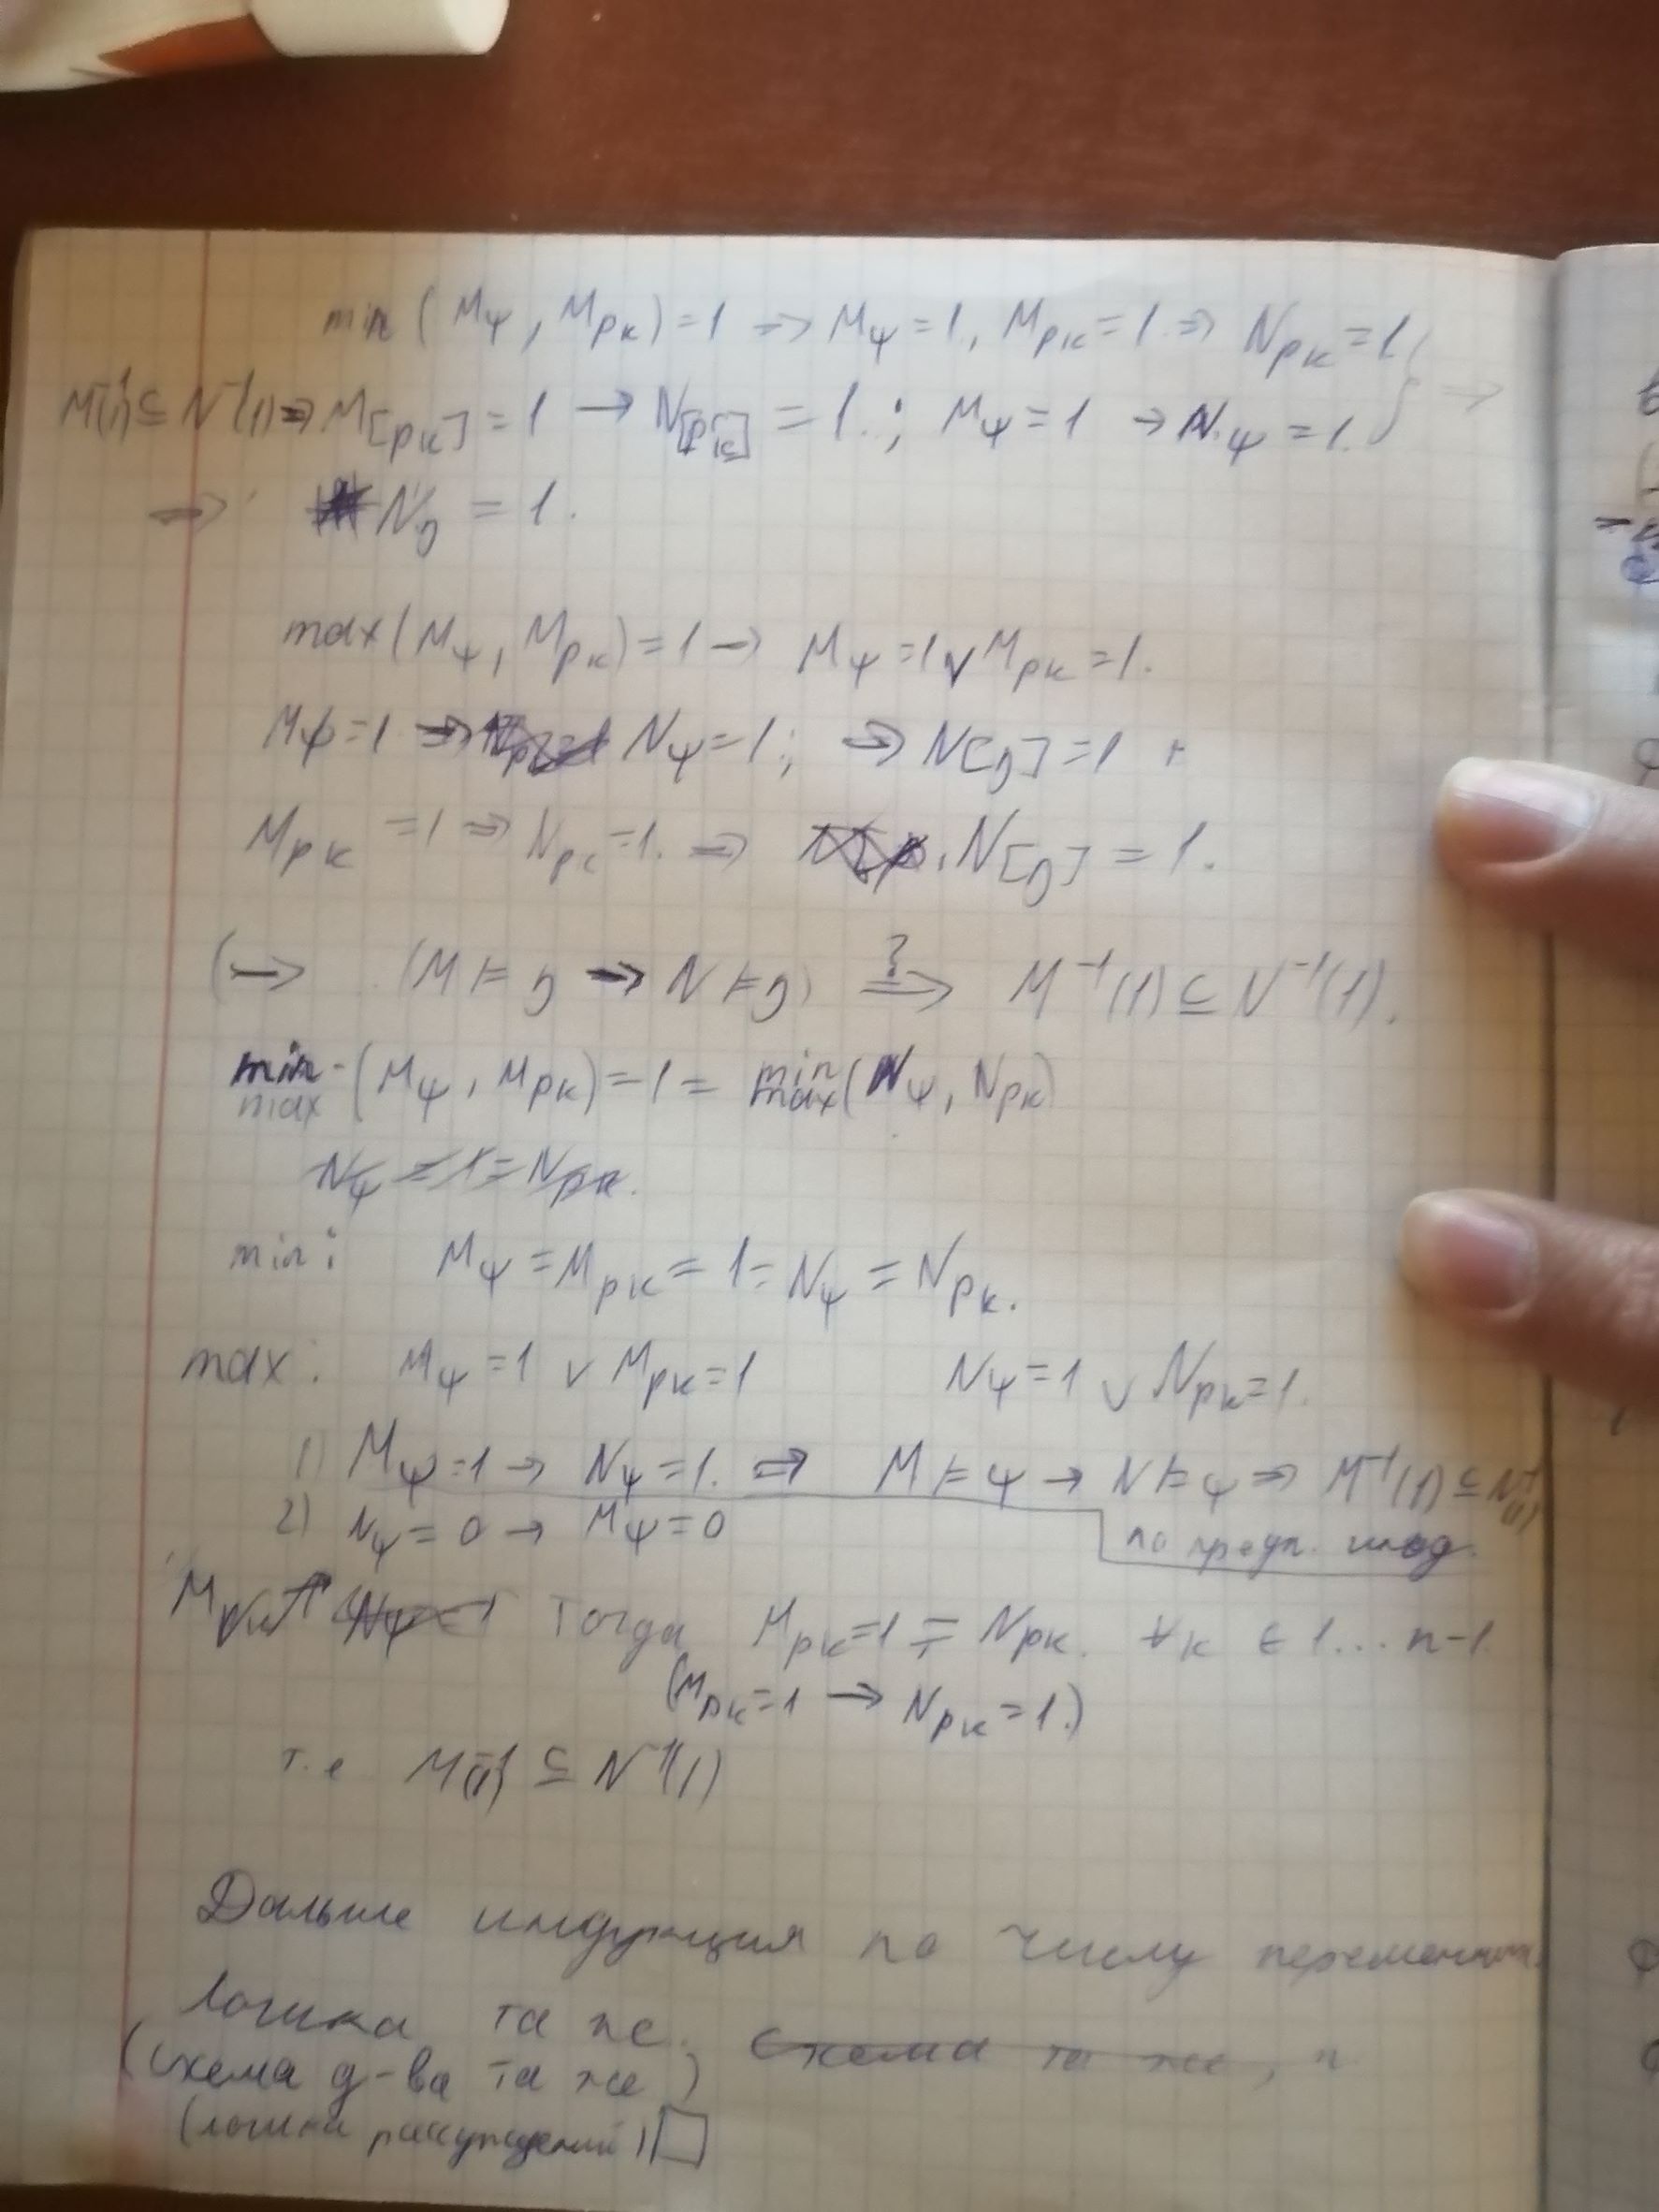 min (Mψ, Mpк) = 1 => Mψ = 1, Mpк = 1. => Npк = 1.
M⁻¹(1) ⊆ N⁻¹(1) => M[pк] = 1 → N[pк] = 1. ; Mψ = 1 → Nψ = 1. } =>
=> Nη = 1.
max (Mψ, Mpк) = 1 → Mψ = 1 ∨ Mpк = 1.
Mψ = 1 => Nψ = 1; => N[η] = 1
Mpк = 1 => Npк = 1. => N[η] = 1.
(→ (M ⊨ η → N ⊨ η) ?=> M⁻¹(1) ⊆ N⁻¹(1).
min (Mψ, Mpк) = 1 = min (Nψ, Npк)
max max
Nψ = 1 = Npк.
min: Mψ = Mpк = 1 = Nψ = Npк.
max: Mψ = 1 ∨ Mpк = 1 Nψ = 1 ∨ Npк = 1.
1) Mψ = 1 → Nψ = 1. => M ⊨ ψ → N ⊨ ψ => M⁻¹(1) ⊆ N⁻¹(1)
2) Nψ = 0 → Mψ = 0 по предп. инд.
Тогда Mpк = 1 = Npк. ∀к ∈ 1... n-1
(Mpк = 1 → Npк = 1.)
т.е M⁻¹(1) ⊆ N⁻¹(1)
Дальше индукция по числу переменных.
Логика та же. Схема та же, и
(схема д-ва та же)
(логика рассуждений) □